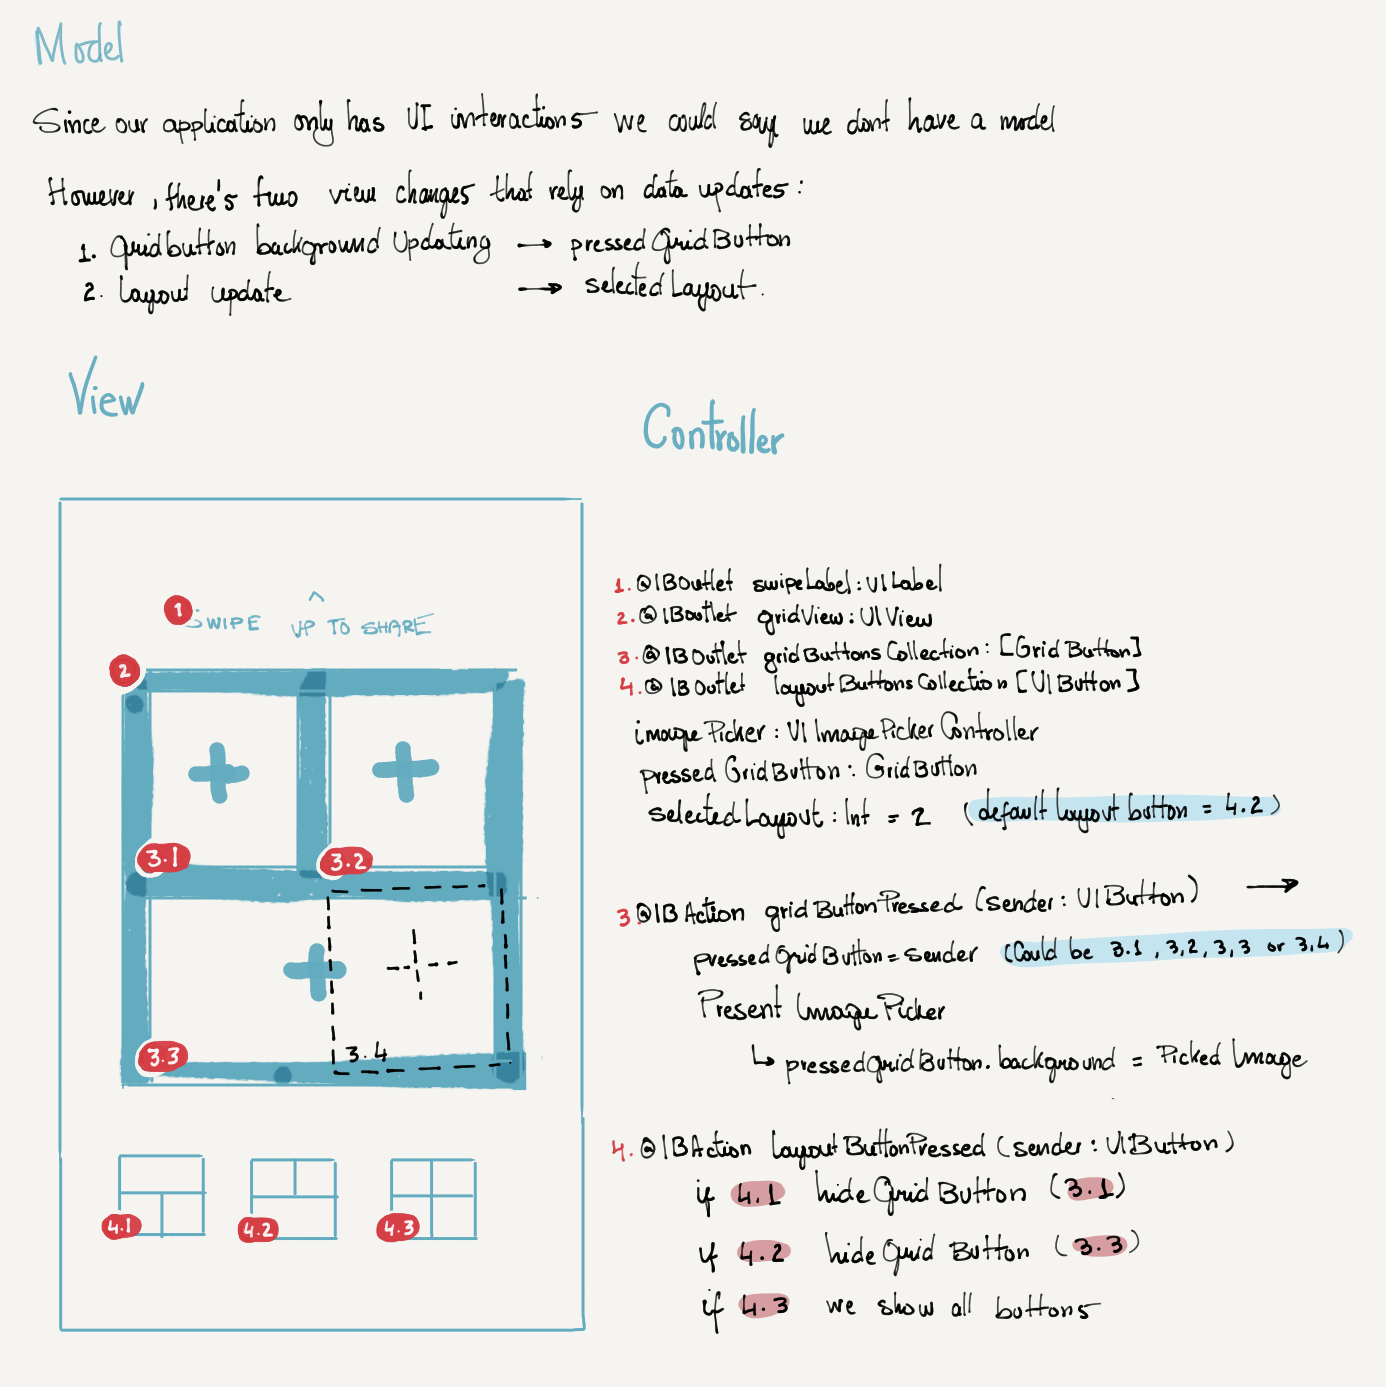 Model
Since our application only has UI interactions we could say we dont have a model
However, there's two view changes that rely on data updates:
1. Gridbutton background Updating → pressedGridButton
2. Layout update → selectedLayout.
View
Controller
1 SWIPE UP TO SHARE
2
3.1
3.2
3.3
3.4
4.1
4.2
4.3
1. @IBOutlet swipeLabel: UILabel
2. @IBOutlet gridView: UIView
3. @IBOutlet gridButtonsCollection: [GridButton]
4. @IBOutlet layoutButtonsCollection [UIButton]
imagePicker: UIImagePickerController
pressedGridButton: GridButton
selectedLayout: Int = 2 (default layout button = 4.2)
3. @IBAction gridButtonPressed (sender: UIButton) →
pressedGridButton = sender (Could be 3.1, 3,2, 3,3 or 3,4)
Present ImagePicker
↳ pressedGridButton.background = Picked Image
4. @IBAction layoutButtonPressed (sender: UIButton)
if 4.1 hide Grid Button (3.1)
if 4.2 hide Grid Button (3.3)
if 4.3 we show all buttons